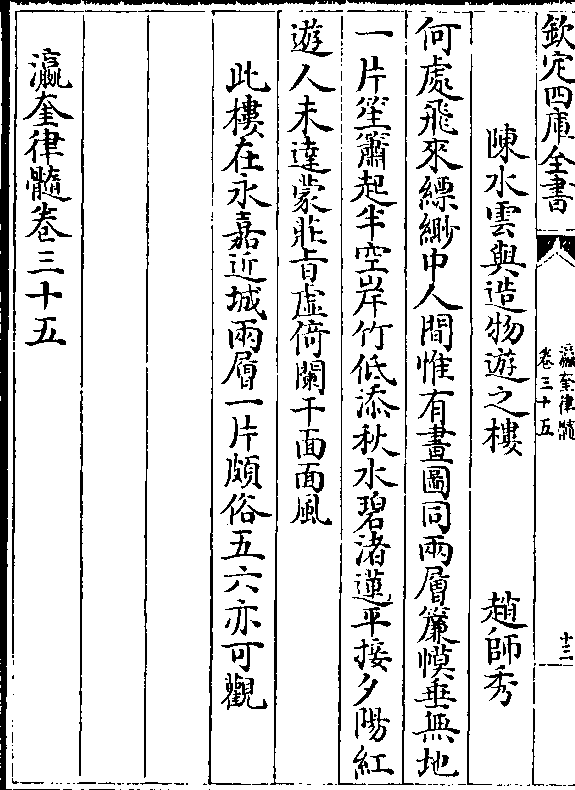 欽定四庫全書
瀛奎律髓
卷三十五
十三
陳水雲與造物遊之樓 趙師秀
何處飛來縹緲中人間惟有畫圖同兩層簾幙垂無地
一片笙簫起半空岸竹低添秋水碧渚蓮平接夕陽紅
遊人未達蒙莊旨虛倚闌干面面風
此樓在永嘉近城兩層一片頗俗五六亦可觀
瀛奎律髓卷三十五